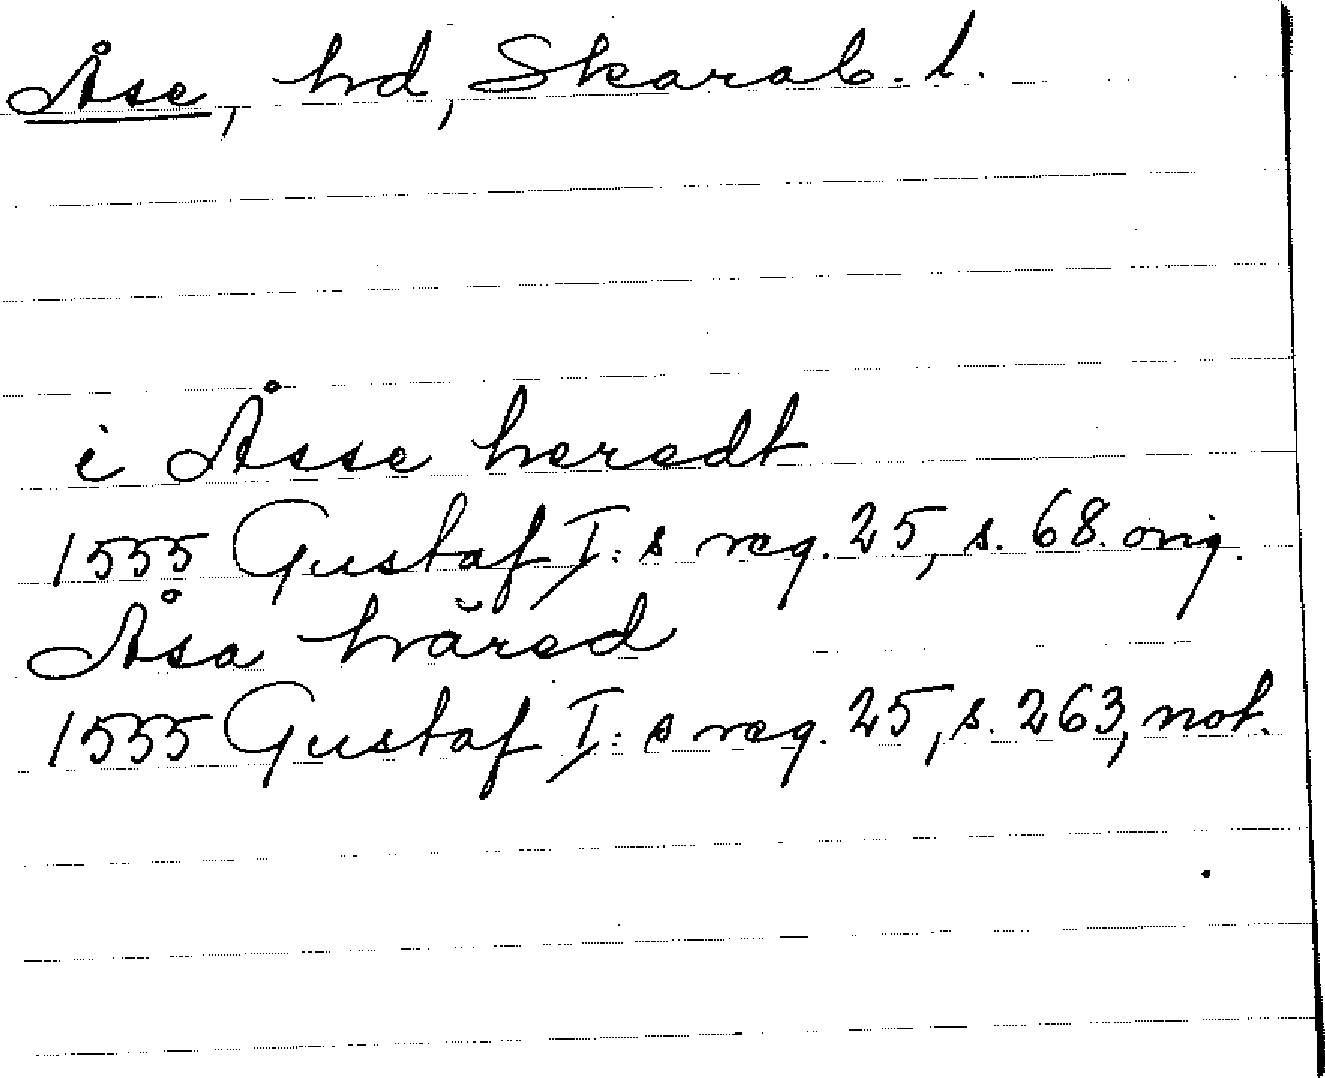 Åse, hd, Skarab. l.
i Åsse heredt
1555 Gustaf I:s reg. 25, s. 68. orig.
Åsa häred
1555 Gustaf I:s reg. 25, s. 263, not.